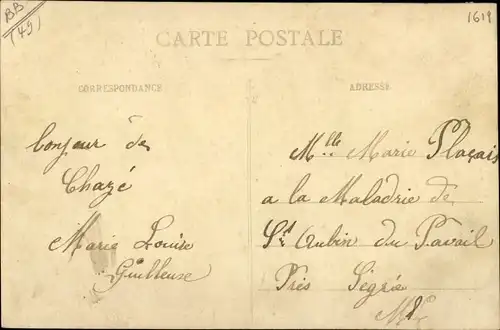 BB
(49)
1618
CARTE POSTALE
CORRESPONDANCE
ADRESSE
bonjour de
Chazé
Marie Louise
Guilleuse
Mlle Marie Plaçais
a la Maladrie de
St Aubin du Pavail
Près Ségré
M&L